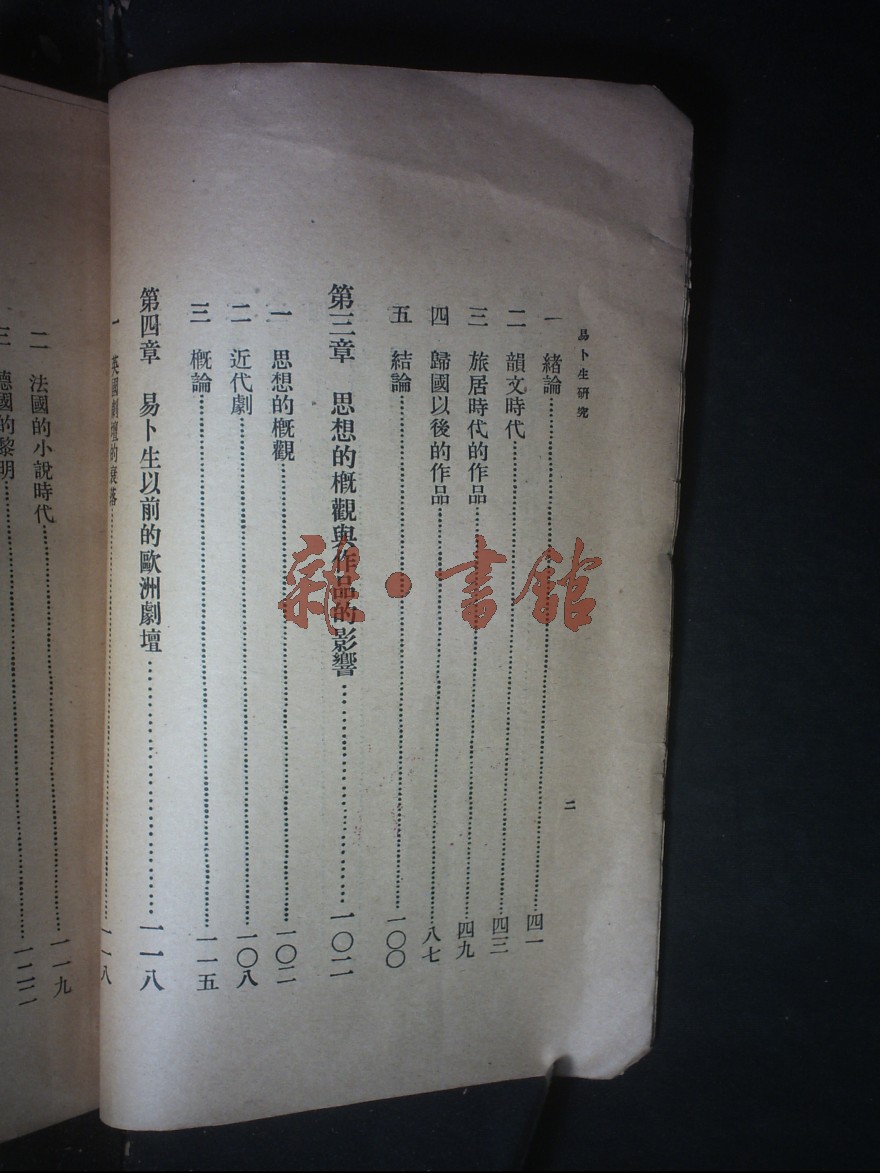 易卜生研究
二
一 緒論……………………四一
二 韻文時代……………………四三
三 旅居時代的作品……………………四九
四 歸國以後的作品……………………八七
五 結論……………………一〇〇
第三章 思想的概觀與作品的影響……………………一〇二
一 思想的概觀……………………一〇二
二 近代劇……………………一〇八
三 概論……………………一一五
第四章 易卜生以前的歐洲劇壇……………………一一八
一 英國劇壇的衰落……………………一一八
二 法國的小說時代……………………一一九
三 德國的黎明……………………一二二
雜·書館